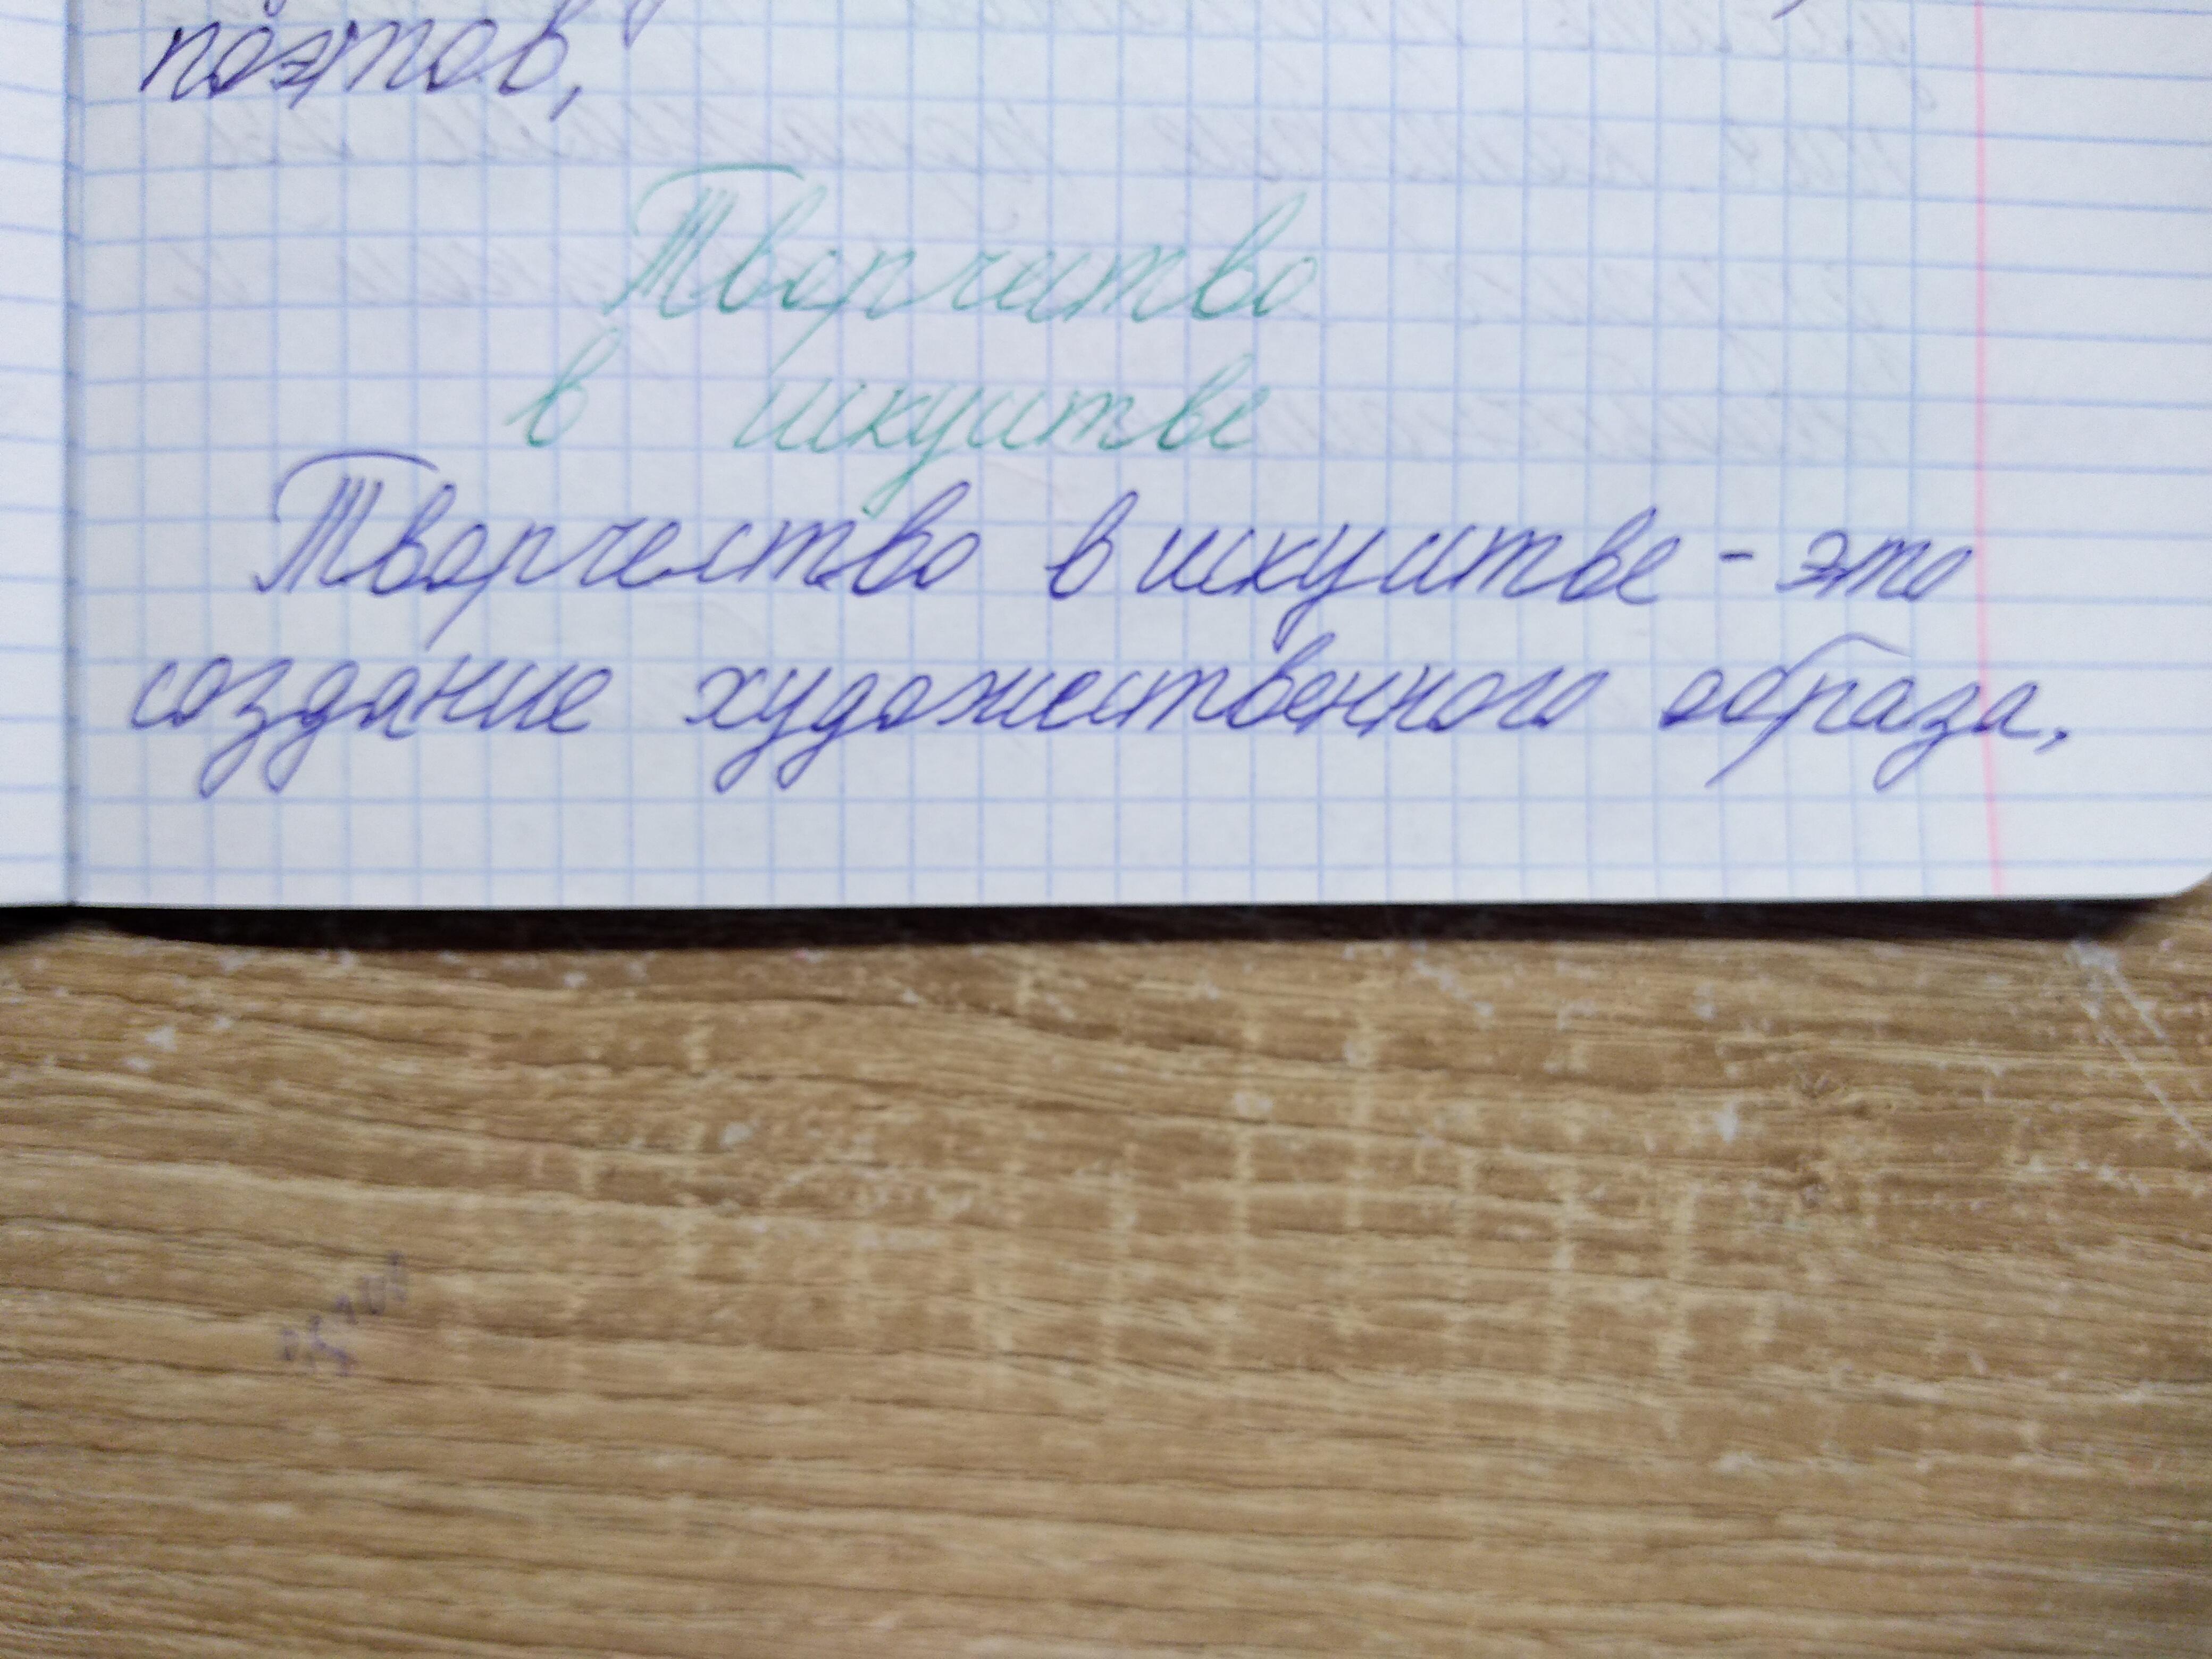 поэтов,
Творчество
в искустве
Творчество в искустве - это
создание художественного образа,